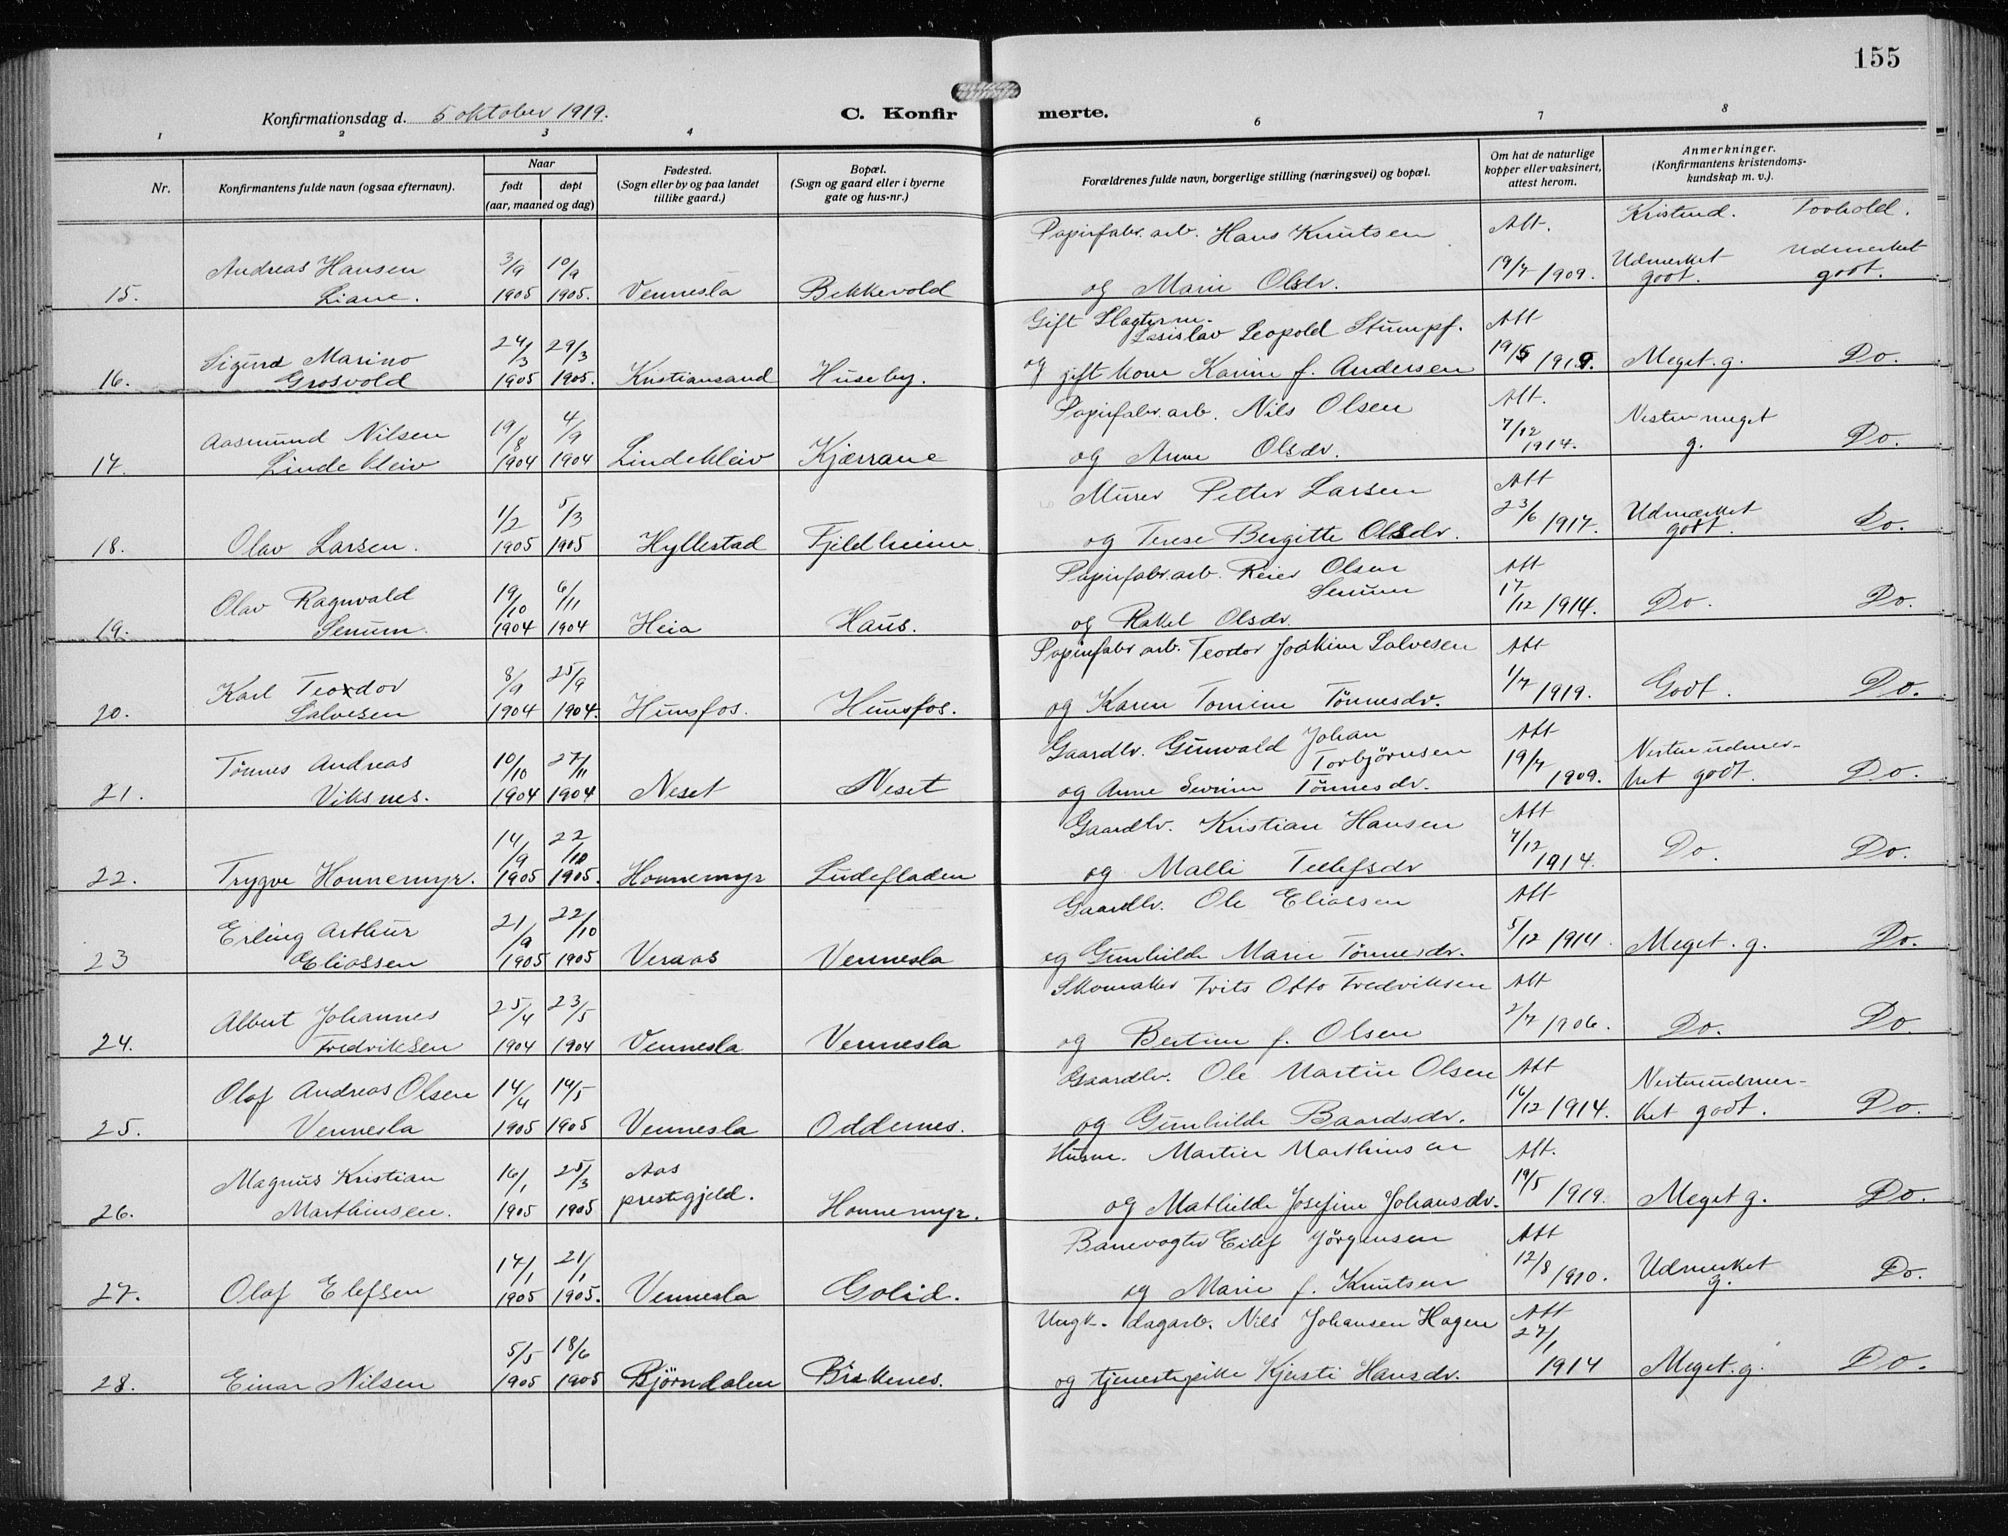 155
Konfirmationsdag d. 5 oktober 1919. C. Konfirmerte.
1 2 3 4 6 7 8
Nr. | Konfirmantens fulde navn (ogsaa efternavn). | Naar født døpt (aar, maaned og dag) | Fødested. (Sogn eller by og paa landet tillike gaard.) | Bopæl. (Sogn og gaard eller i byerne gate og hus-nr.) | Forældrenes fulde navn, borgerlige stilling (næringsvei) og bopæl. | Om hat de naturlige kopper eller vaksinert, attest herom. | Anmerkninger. (Konfirmantens kristendomskundskap m. v.).
Kristend. Forhold.
15. Andreas Hansen Liane. 3/9 1905 10/9 1905. Vennesla Bekkevold Papirfabr. arb. Hans Knutsen og Marie Olsdr. Att. 19/7 1909. Udmerket godt. Udmerket godt.
16. Sigurd Marino Grosvold 24/3 1905 29/3 1905. Kristiansand Huseby. Gift Slagterm. Lasislav Leopold Stumpf. og gift kone Karine f. Andersen Att 19/5 1919. Meget. g. Do.
17. Aasmund Nilsen Lindekleiv 19/8 1904 4/9 1904 Lindekleiv Kjærrane Papirfabr. arb. Nils Olsen og Anne Olsdr. Att. 7/12 1914. Nesten meget g. Do.
18. Olav Larsen. 1/2 1905 5/3 1905 Hyllestad Fjeldheim. Murer Petter Larsen og Terese Bergitte Olsdr. Att 23/6 1917. Udmærket godt. Do.
19. Olav Ragnvald Senum. 19/10 1904 6/11 1904 Heia Haus. Papirfabr. arb. Reier Olsen Senum og Rakel Olsdr. Att 17/12 1914. Do. Do.
20. Karl Teodor Salvesen 8/9 1904 25/9 1904. Hunsfos. Hunsfos. Papirfabr. arb. Teodor Joakim Salvesen og Karen Tomine Tønnesdr. Att 1/7 1919. Godt. Do.
21. Tønnes Andreas Viksnes. 10/10 1904 27/11 1904 Neset Neset Gaardbr. Gunvald Johan Torbjørnsen og Anne Severine Tønnesdr. Att 19/7 1909. Nesten udmerket godt. Do.
22. Trygve Honnemyr. 14/9 1905 22/10 1905. Honnemyr Ludefladen Gaardbr. Kristian Hansen og Malli Tellefsdr Att 7/12 1914. Do. Do.
23 Erling Arthur Eliassen 21/9 1905 22/10 1905 Veraas Vennesla Gaardbr. Ole Eliassen og Gunhilde Marie Tønnesdr. Att 5/12 1914. Meget. g. Do.
24. Albert Johannes Fredriksen 25/4 1904 23/5 1904 Vennesla Vennesla Skomaker Frits Otto Fredriksen og Bertine f. Olsen Att 2/7 1906. Do. Do.
25. Olaf Andreas Olsen Vennesla 14/4 1905 14/5 1905 Vennesla Oddernes. Gaardbr. Ole Martin Olsen og Gunhilde Baardsdr. Att 16/12 1914. Nesten udmerket godt. Do.
26. Magnus Kristian Marthinsen. 16/1 1905 25/3 1905 Aas prestegjeld. Honnemyr. Husm. Martin Marthinsen og Mathilde Josefine Johansdr. Att. 19/5 1919. Meget g. Do.
27. Olaf Elefsen 17/1 1905 21/1 1905. Vennesla Golid. Banevogter Eilef Jørgensen og Marie f. Knutsen Att 12/8 1910. Udmerket g. Do.
28. Einar Nilsen 5/5 1905 18/6 1905 Bjørndalen Birkenes. Ungk. dagarb. Nils Johansen Hagen og tjenestepike Kjersti Hansdr. Att 27/1 1914 Meget. g. Do.